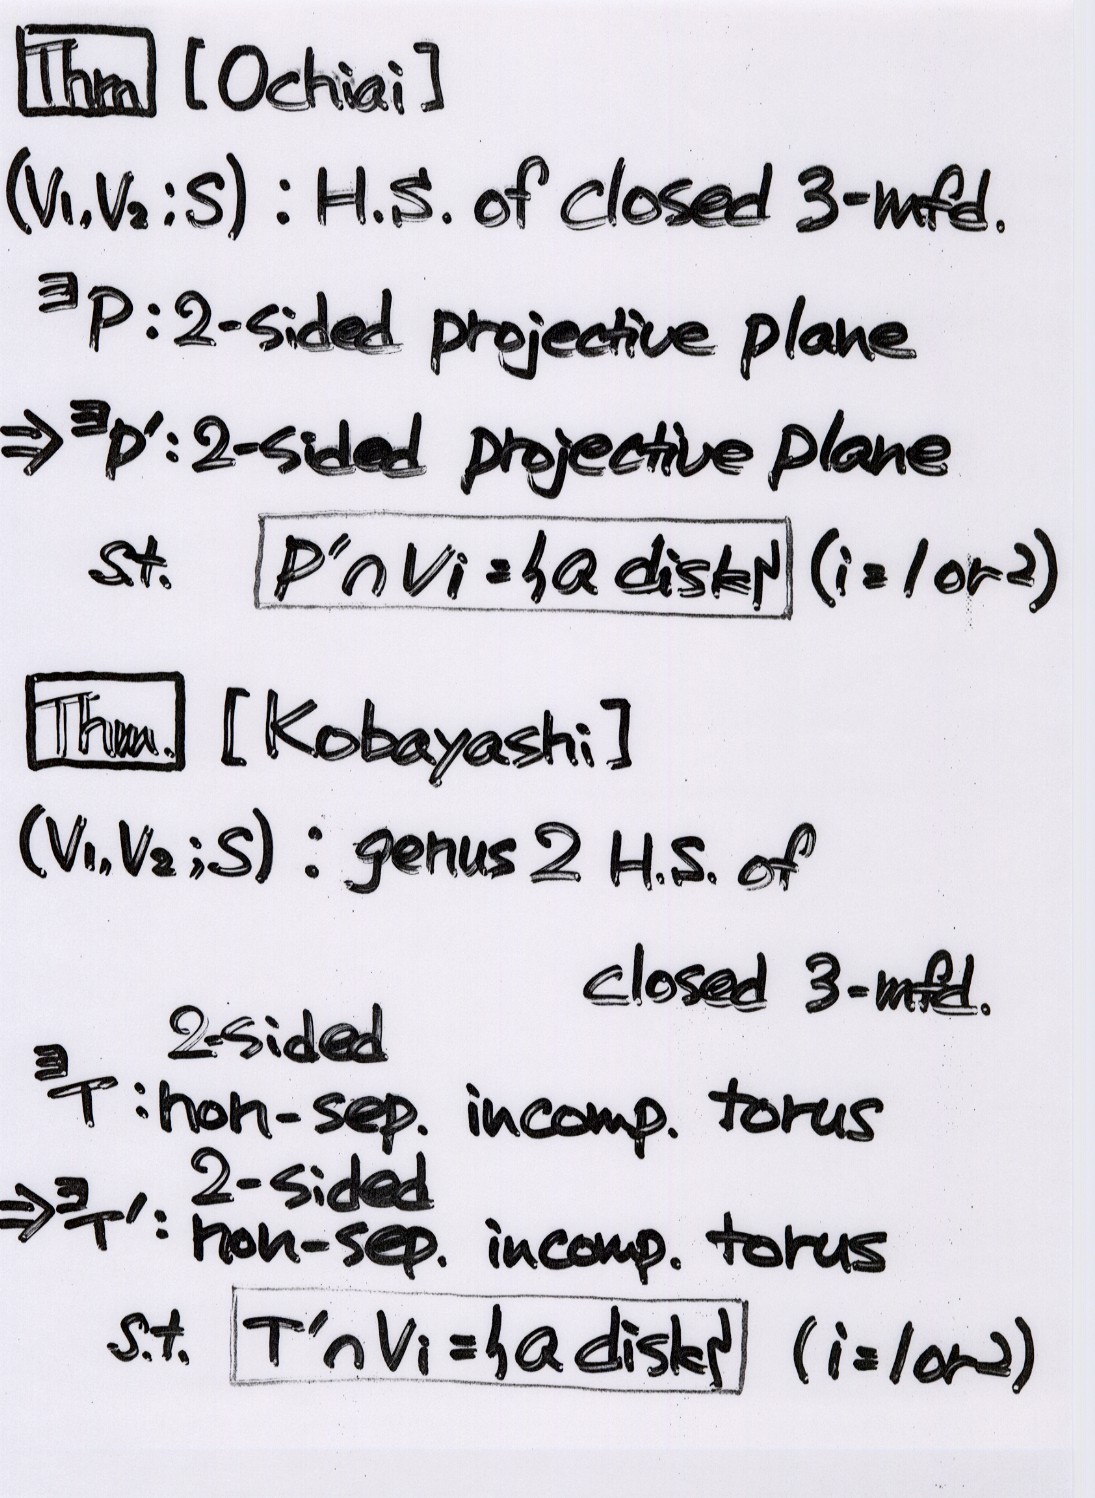 Thm [Ochiai]
(V₁,V₂;S) : H.S. of closed 3-mfd.
∃P: 2-sided projective plane
⇒ ∃P′: 2-sided projective plane
s.t. P′∩Vi = {a disk} (i=1 or 2)
Thm. [Kobayashi]
(V₁,V₂;S) : genus 2 H.S. of
closed 3-mfd.
2-sided
∃T: non-sep. incomp. torus
2-sided
⇒ ∃T′: non-sep. incomp. torus
s.t. T′∩Vi = {a disk} (i=1 or 2)